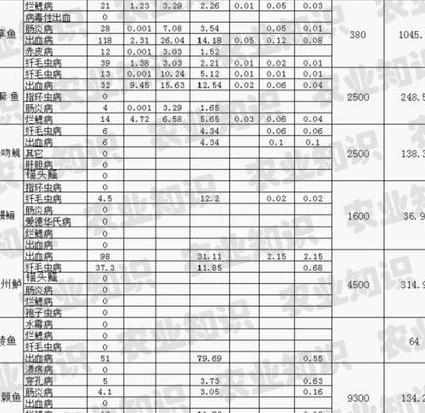 烂鳃病 21 1.23 3.29 2.26 0.01 0.05 0.03
病毒性出血 0
草鱼 肠炎病 28 0.001 7.08 3.54 0.05 0.01 380 1045.
出血病 118 2.31 26.04 14.18 0.05 0.12 0.08
赤皮病 12 0.001 3.03 1.52
纤毛虫病 39 1.38 3.03 2.21 0.01 0.02 0.01
纤毛虫病 13 0.001 10.24 5.12 0.01 0.01 0.01
出血病 32 9.45 15.63 12.54 0.02 0.06 0.04
鱼 指环虫病 0 2500 248.5
肠炎病 4 0.001 3.29 1.65
烂鳃病 14 4.72 6.58 5.65 0.03 0.06 0.04
纤毛虫病 6 4.34 0.06 0.06
出血病 6 4.34 0.1 0.1
吻鮠 其它 0 2500 138.3
肝胆病 0
锚头鳋 0
指环虫病 0
纤毛虫病 4.5 12.2 0.02 0.02
肠炎病 0
鳗鲡 爱德华氏病 0 1600 36.9
烂鳃病 0
出血病 0
出血病 98 31.11 2.15 2.15
纤毛虫病 37.3 11.85 0.68
州鲇 锚头鳋 0 4500 314.9
肠炎病 0
烂鳃病 0
孢子虫病 0
水霉病 0
鱼 烂鳃病 0 64
纤毛虫病 0
出血病 51 79.69 0.55
溃疡病 0
穿孔病 5 3.73 0.63
颡鱼 肠炎病 4.1 3.05 0.16 9300 134.2
出血病 0
农业知识
农业知识
农业知识
农业知识
农业知识
农业知识